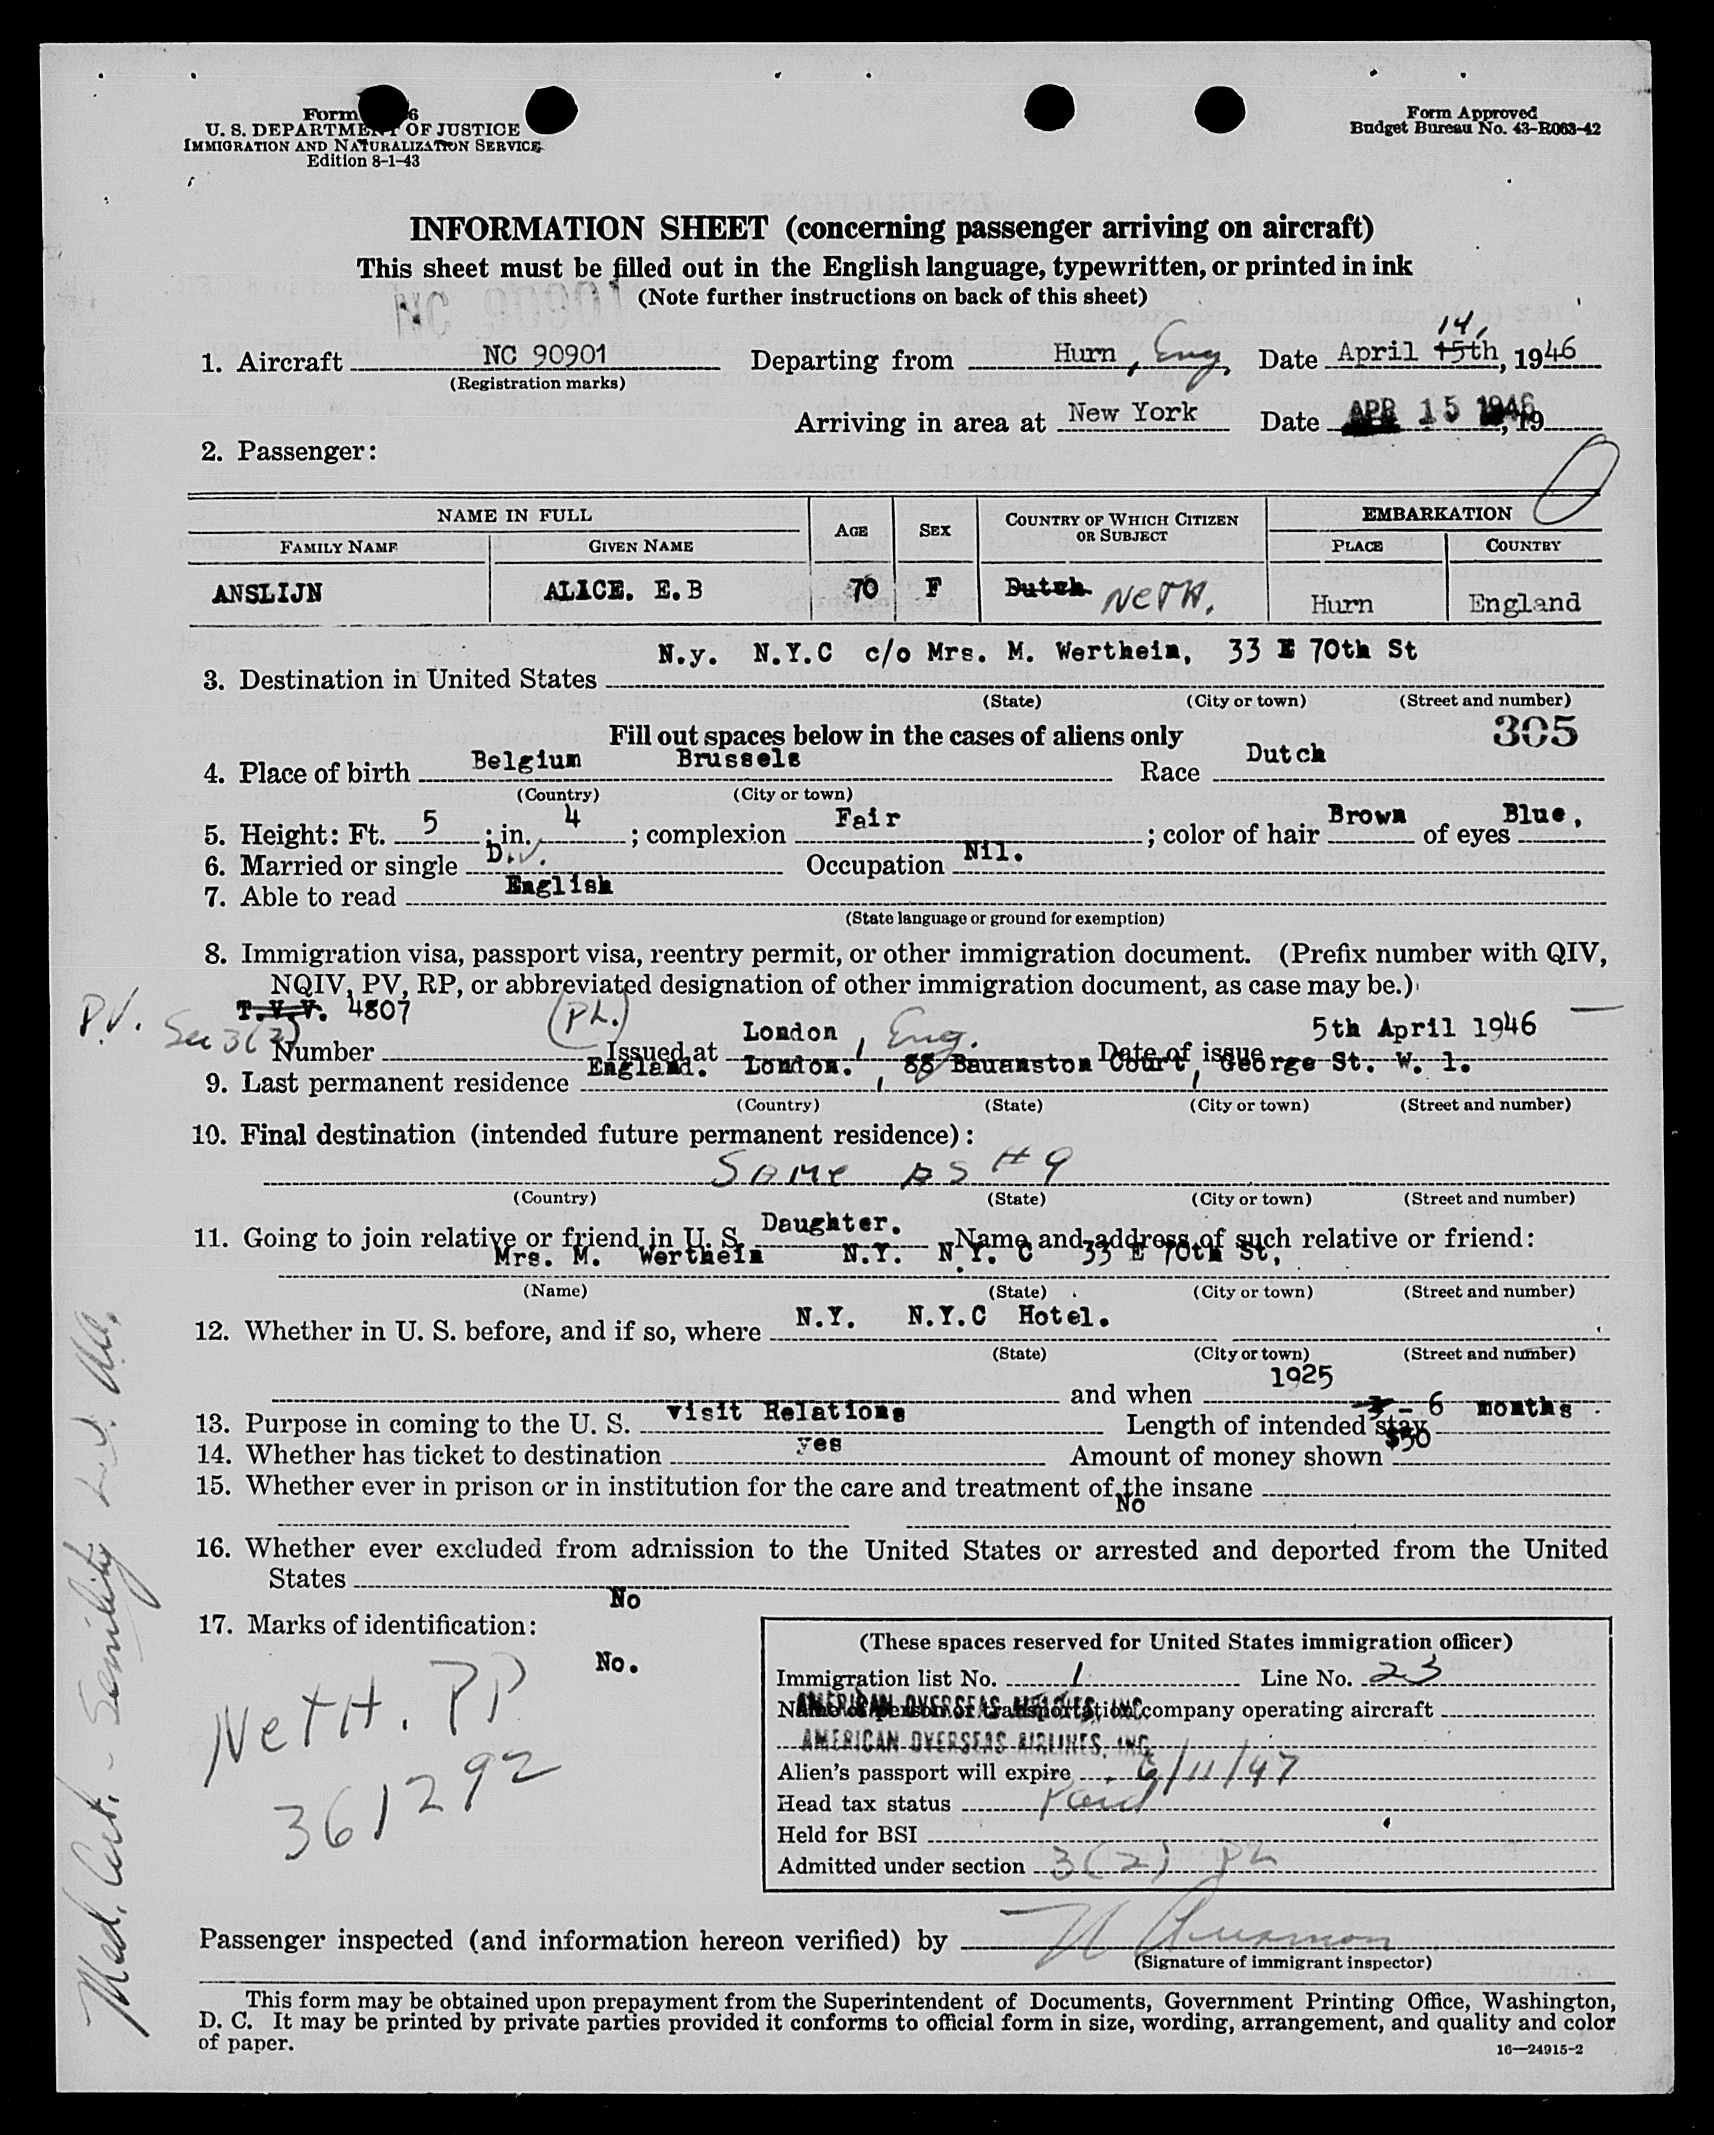 Form 6
U. S. DEPARTMENT OF JUSTICE
IMMIGRATION AND NATURALIZATION SERVICE
Edition 8-1-43
Form Approved
Budget Bureau No. 43-R063-42
INFORMATION SHEET (concerning passenger arriving on aircraft)
This sheet must be filled out in the English language, typewritten, or printed in ink
NC 90901
(Note further instructions on back of this sheet)
14,
1. Aircraft NC 90901 Departing from Hurn, Eng, Date April 15th, 1946
(Registration marks)
Arriving in area at New York Date APR 15 1946, 19
2. Passenger:
NAME IN FULL AGE SEX COUNTRY OF WHICH CITIZEN OR SUBJECT EMBARKATION
FAMILY NAME GIVEN NAME PLACE COUNTRY
ANSLIJN ALICE. E.B 70 F Dutch NETH. Hurn England
N.y. N.Y.C c/o Mrs. M. Wertheim, 33 E 70th St
3. Destination in United States
(State) (City or town) (Street and number)
Fill out spaces below in the cases of aliens only 305
4. Place of birth Belgium Brussels Race Dutch
(Country) (City or town)
5. Height: Ft. 5 ; in. 4 ; complexion Fair ; color of hair Brown of eyes Blue,
6. Married or single Div. Occupation Nil.
7. Able to read English
(State language or ground for exemption)
8. Immigration visa, passport visa, reentry permit, or other immigration document. (Prefix number with QIV,
NQIV, PV, RP, or abbreviated designation of other immigration document, as case may be.)
P.V. Sec 3(2) T.V.V. 4807 (PL.)
Number Issued at London, Eng. Date of issue 5th April 1946
9. Last permanent residence England. London. 88 Bauanston Court, George St. W. 1.
(Country) (State) (City or town) (Street and number)
10. Final destination (intended future permanent residence):
SAME AS #9
(Country) (State) (City or town) (Street and number)
11. Going to join relative or friend in U. S. Daughter. Name and address of such relative or friend:
Mrs. M. Wertheim N.Y. N.Y. C 33 E 70th St,
(Name) (State) (City or town) (Street and number)
12. Whether in U. S. before, and if so, where N.Y. N.Y.C Hotel.
(State) (City or town) (Street and number)
and when 1925
13. Purpose in coming to the U. S. visit Relations Length of intended stay - 6 months.
14. Whether has ticket to destination yes Amount of money shown $50
15. Whether ever in prison or in institution for the care and treatment of the insane
No
16. Whether ever excluded from admission to the United States or arrested and deported from the United
States No
17. Marks of identification:
No.
NETH. PP
361292
(These spaces reserved for United States immigration officer)
Immigration list No. 1 Line No. 23
Name of person or transportation company operating aircraft
AMERICAN OVERSEAS AIRLINES, INC.
AMERICAN OVERSEAS AIRLINES, INC.
Alien's passport will expire 6/11/47
Head tax status Paid
Held for BSI
Admitted under section 3(2) PL
Passenger inspected (and information hereon verified) by
(Signature of immigrant inspector)
This form may be obtained upon prepayment from the Superintendent of Documents, Government Printing Office, Washington,
D. C. It may be printed by private parties provided it conforms to official form in size, wording, arrangement, and quality and color
of paper.
16—24915-2
Med. Cert. - Senility